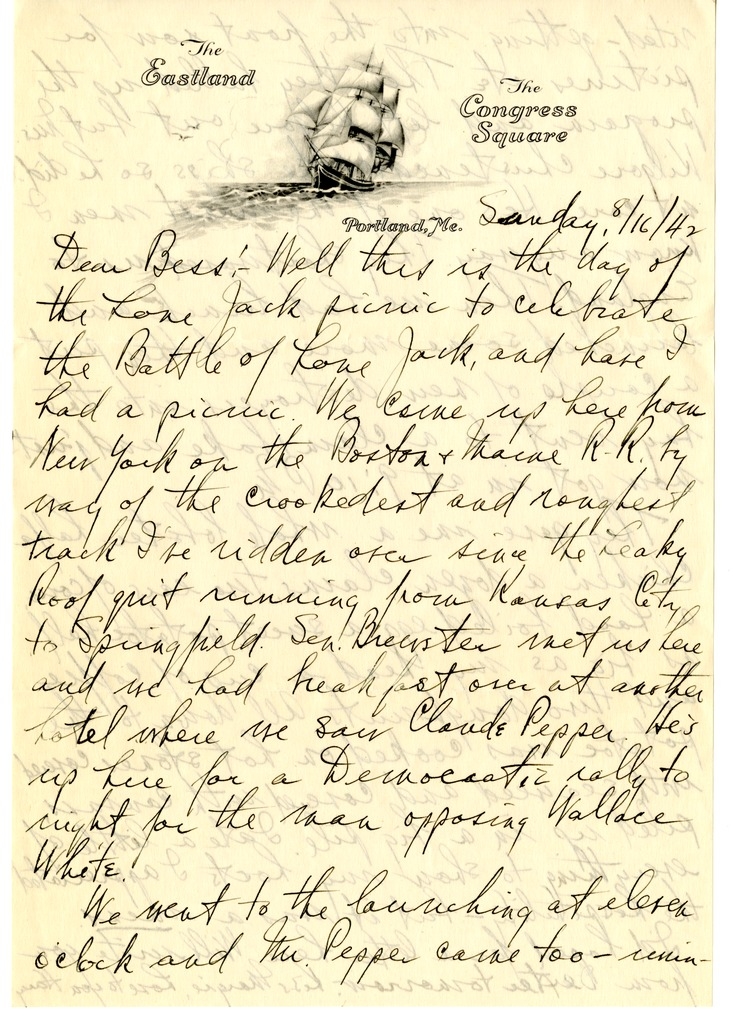 The
Eastland
The
Congress
Square
Portland, Me.
Sunday, 8/16/42
Dear Bess:- Well this is the day of
the Lone Jack picnic to celebrate
the Battle of Lone Jack, and have I
had a picnic. We came up here from
New York on the Boston & Maine R.R. by
way of the crookedest and roughest
track I've ridden over since the Leaky
Roof quit running from Kansas City
to Springfield. Sen. Brewster met us here
and we had breakfast over at another
hotel where we saw Claude Pepper. He's
up here for a Democratic rally to
night for the man opposing Wallace
White.
We went to the launching at eleven
o'clock and Mr. Pepper came too - unin-